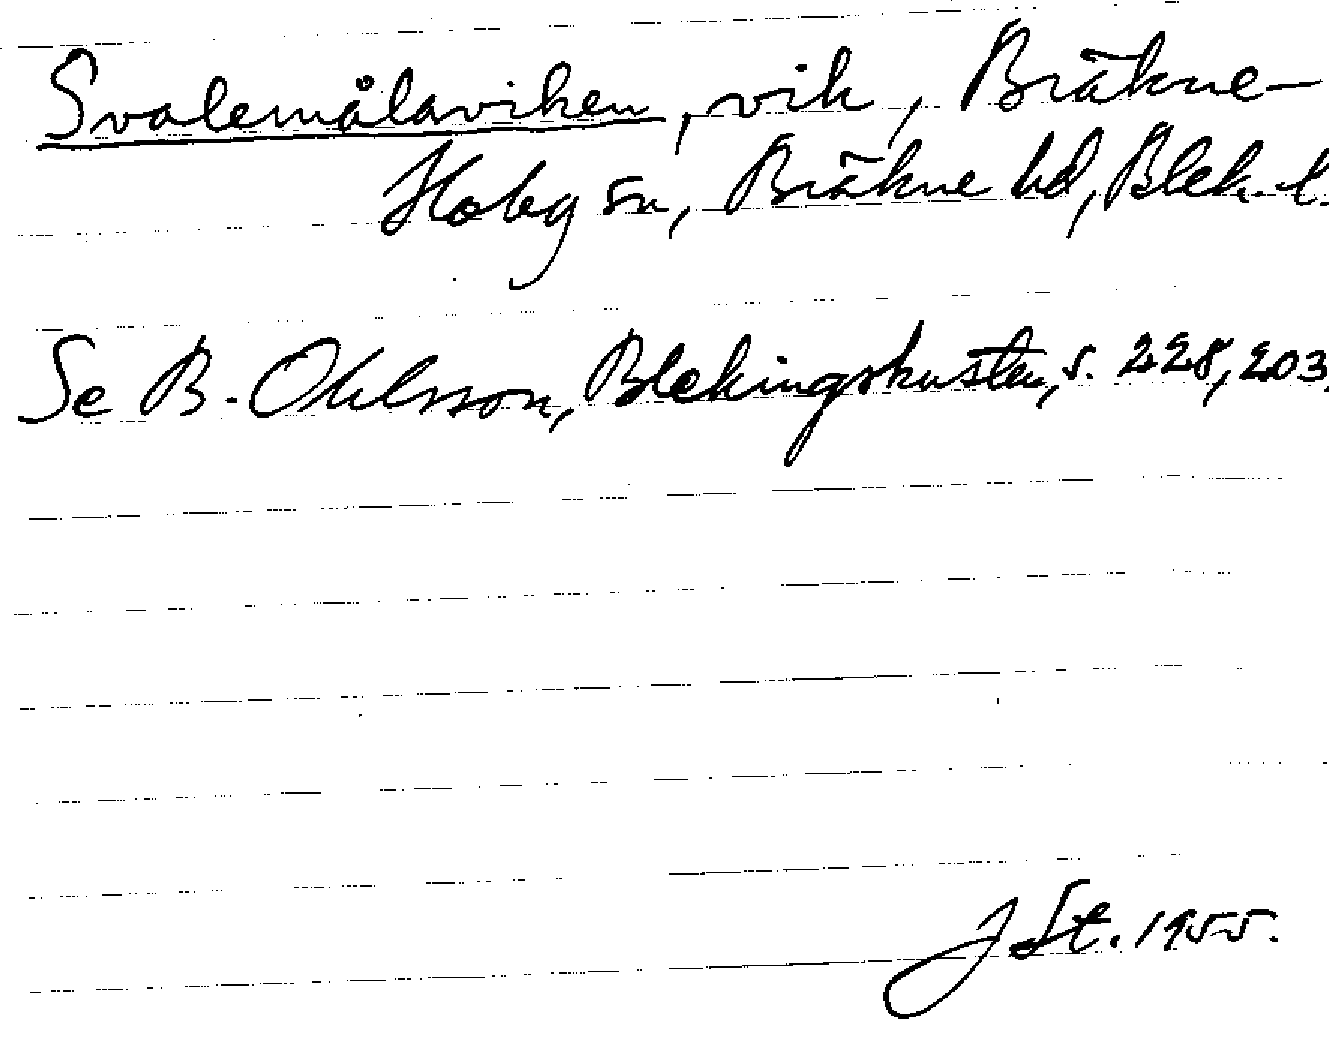 Svalemålaviken, vik, Bräkne-
Hoby sn, Bräkne hd, Blek. l.
Se B. Ohlsson, Blekingskusten, s. 228, 203.
J St. 1955.